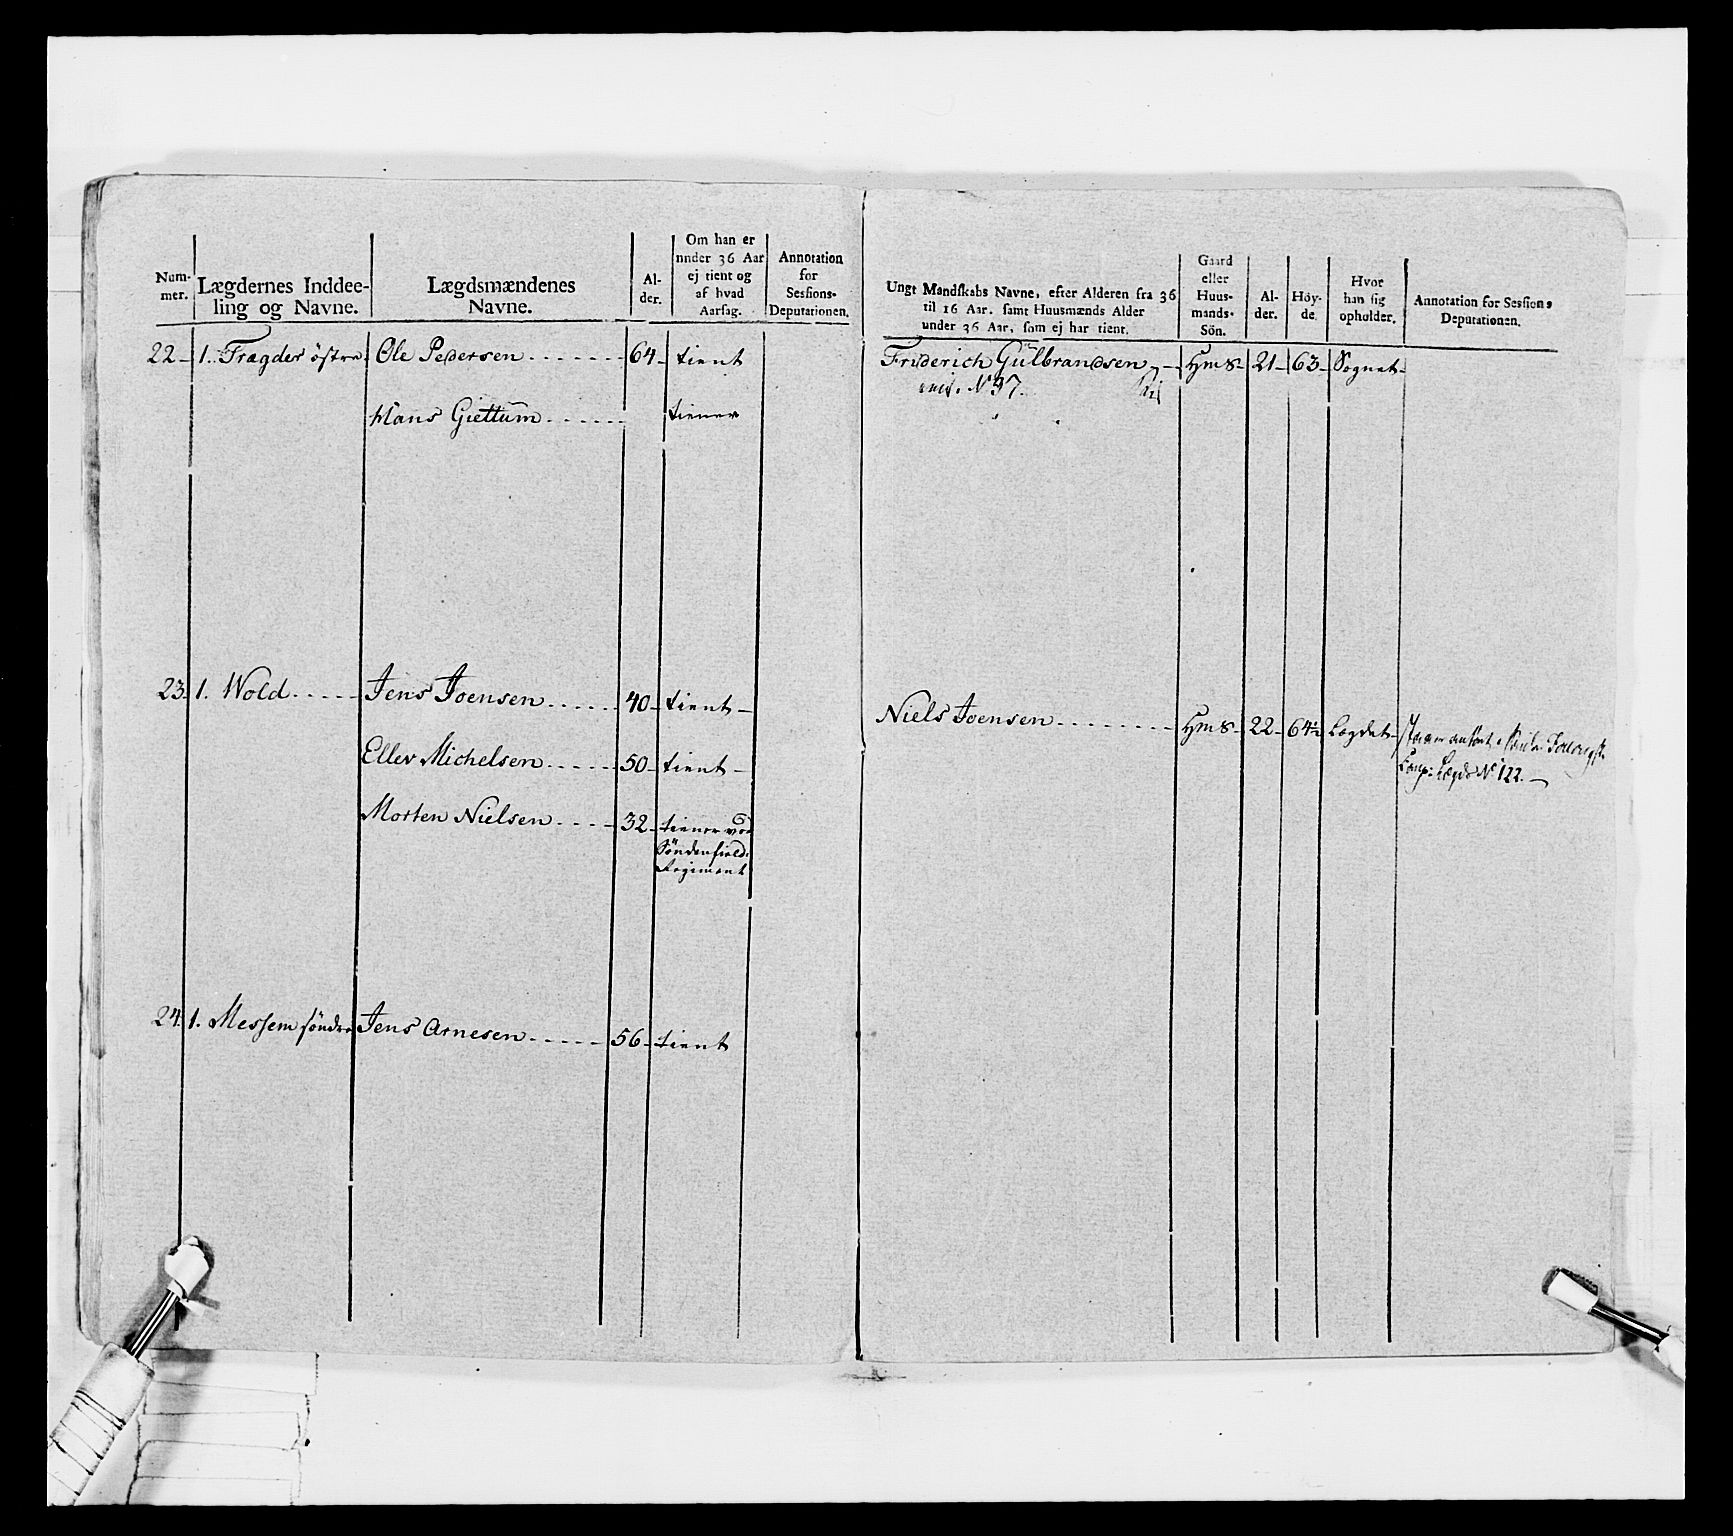 Num-
mer.
Lægdernes Inddee-
ling og Navne.
Lægdsmændenes
Navne.
Al-
der.
Om han er
under 36 Aar
ej tient og
af hvad
Aarsag.
Annotation
for
Sessions-
Deputationen.
22 1. Fragder østre Ole Pedersen 64 tient
Hans Giettum tiener
23. 1. Wold Jens Joensen 40 tient
Ellev Michelsen 50 tient
Morten Nielsen 32 tiener ved
Søndenfield:
Regiment
24. 1. Messem søndre Jens Arnesen 56 tient
Ungt Mandskabs Navne, efter Alderen fra 36
til 16 Aar, samt Huusmænds Alder
under 36 Aar, som ej har tient.
Gaard
eller
Huus-
mands-
Sön.
Al-
der.
Høy-
de.
Hvor
han sig
opholder.
Annotation for Sessions
Deputationen.
Friderich Gulbrandsen Hms 21 63 Sognet
N° 37.
Niels Joensen Hms 22 64½ Lægdet
Comp: Lægds N° 122.